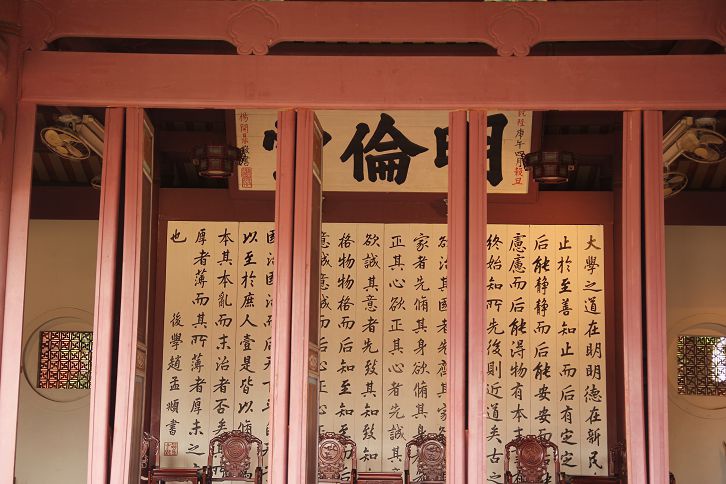 明倫
庚午四月穀旦
大學之道在明明德在新民
止於至善知止而后有定定
后能靜靜而后能安安而
慮慮而后能得物有本末
終始知所先後則近道矣古
欲治其國者先齊其家
家者先脩其身欲脩其身
正其心欲正其心者先誠
欲誠其意者先致其知致知
格物物格而后知至知至
意誠意誠而后心正
國治國治而后天下平
以至於庶人壹是皆以脩
本其本亂而末治者否矣其
厚者薄而其所薄者厚未之
也
後學趙孟頫書